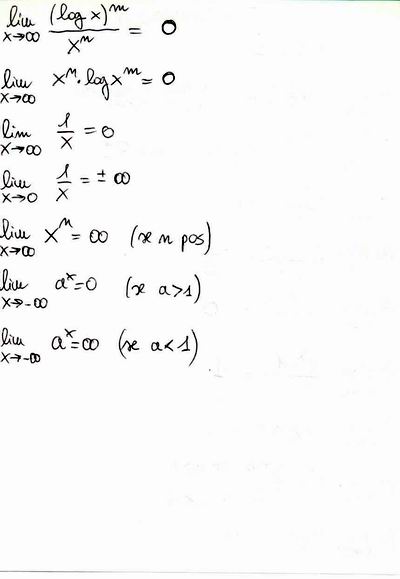 lim x→∞ (log x)^m / x^n = 0
lim x→∞ x^n · log x^m = 0
lim x→∞ 1/x = 0
lim x→0 1/x = ± ∞
lim x→∞ x^n = ∞ (se n pos)
lim x→-∞ a^x = 0 (se a>1)
lim x→-∞ a^x = ∞ (se a<1)